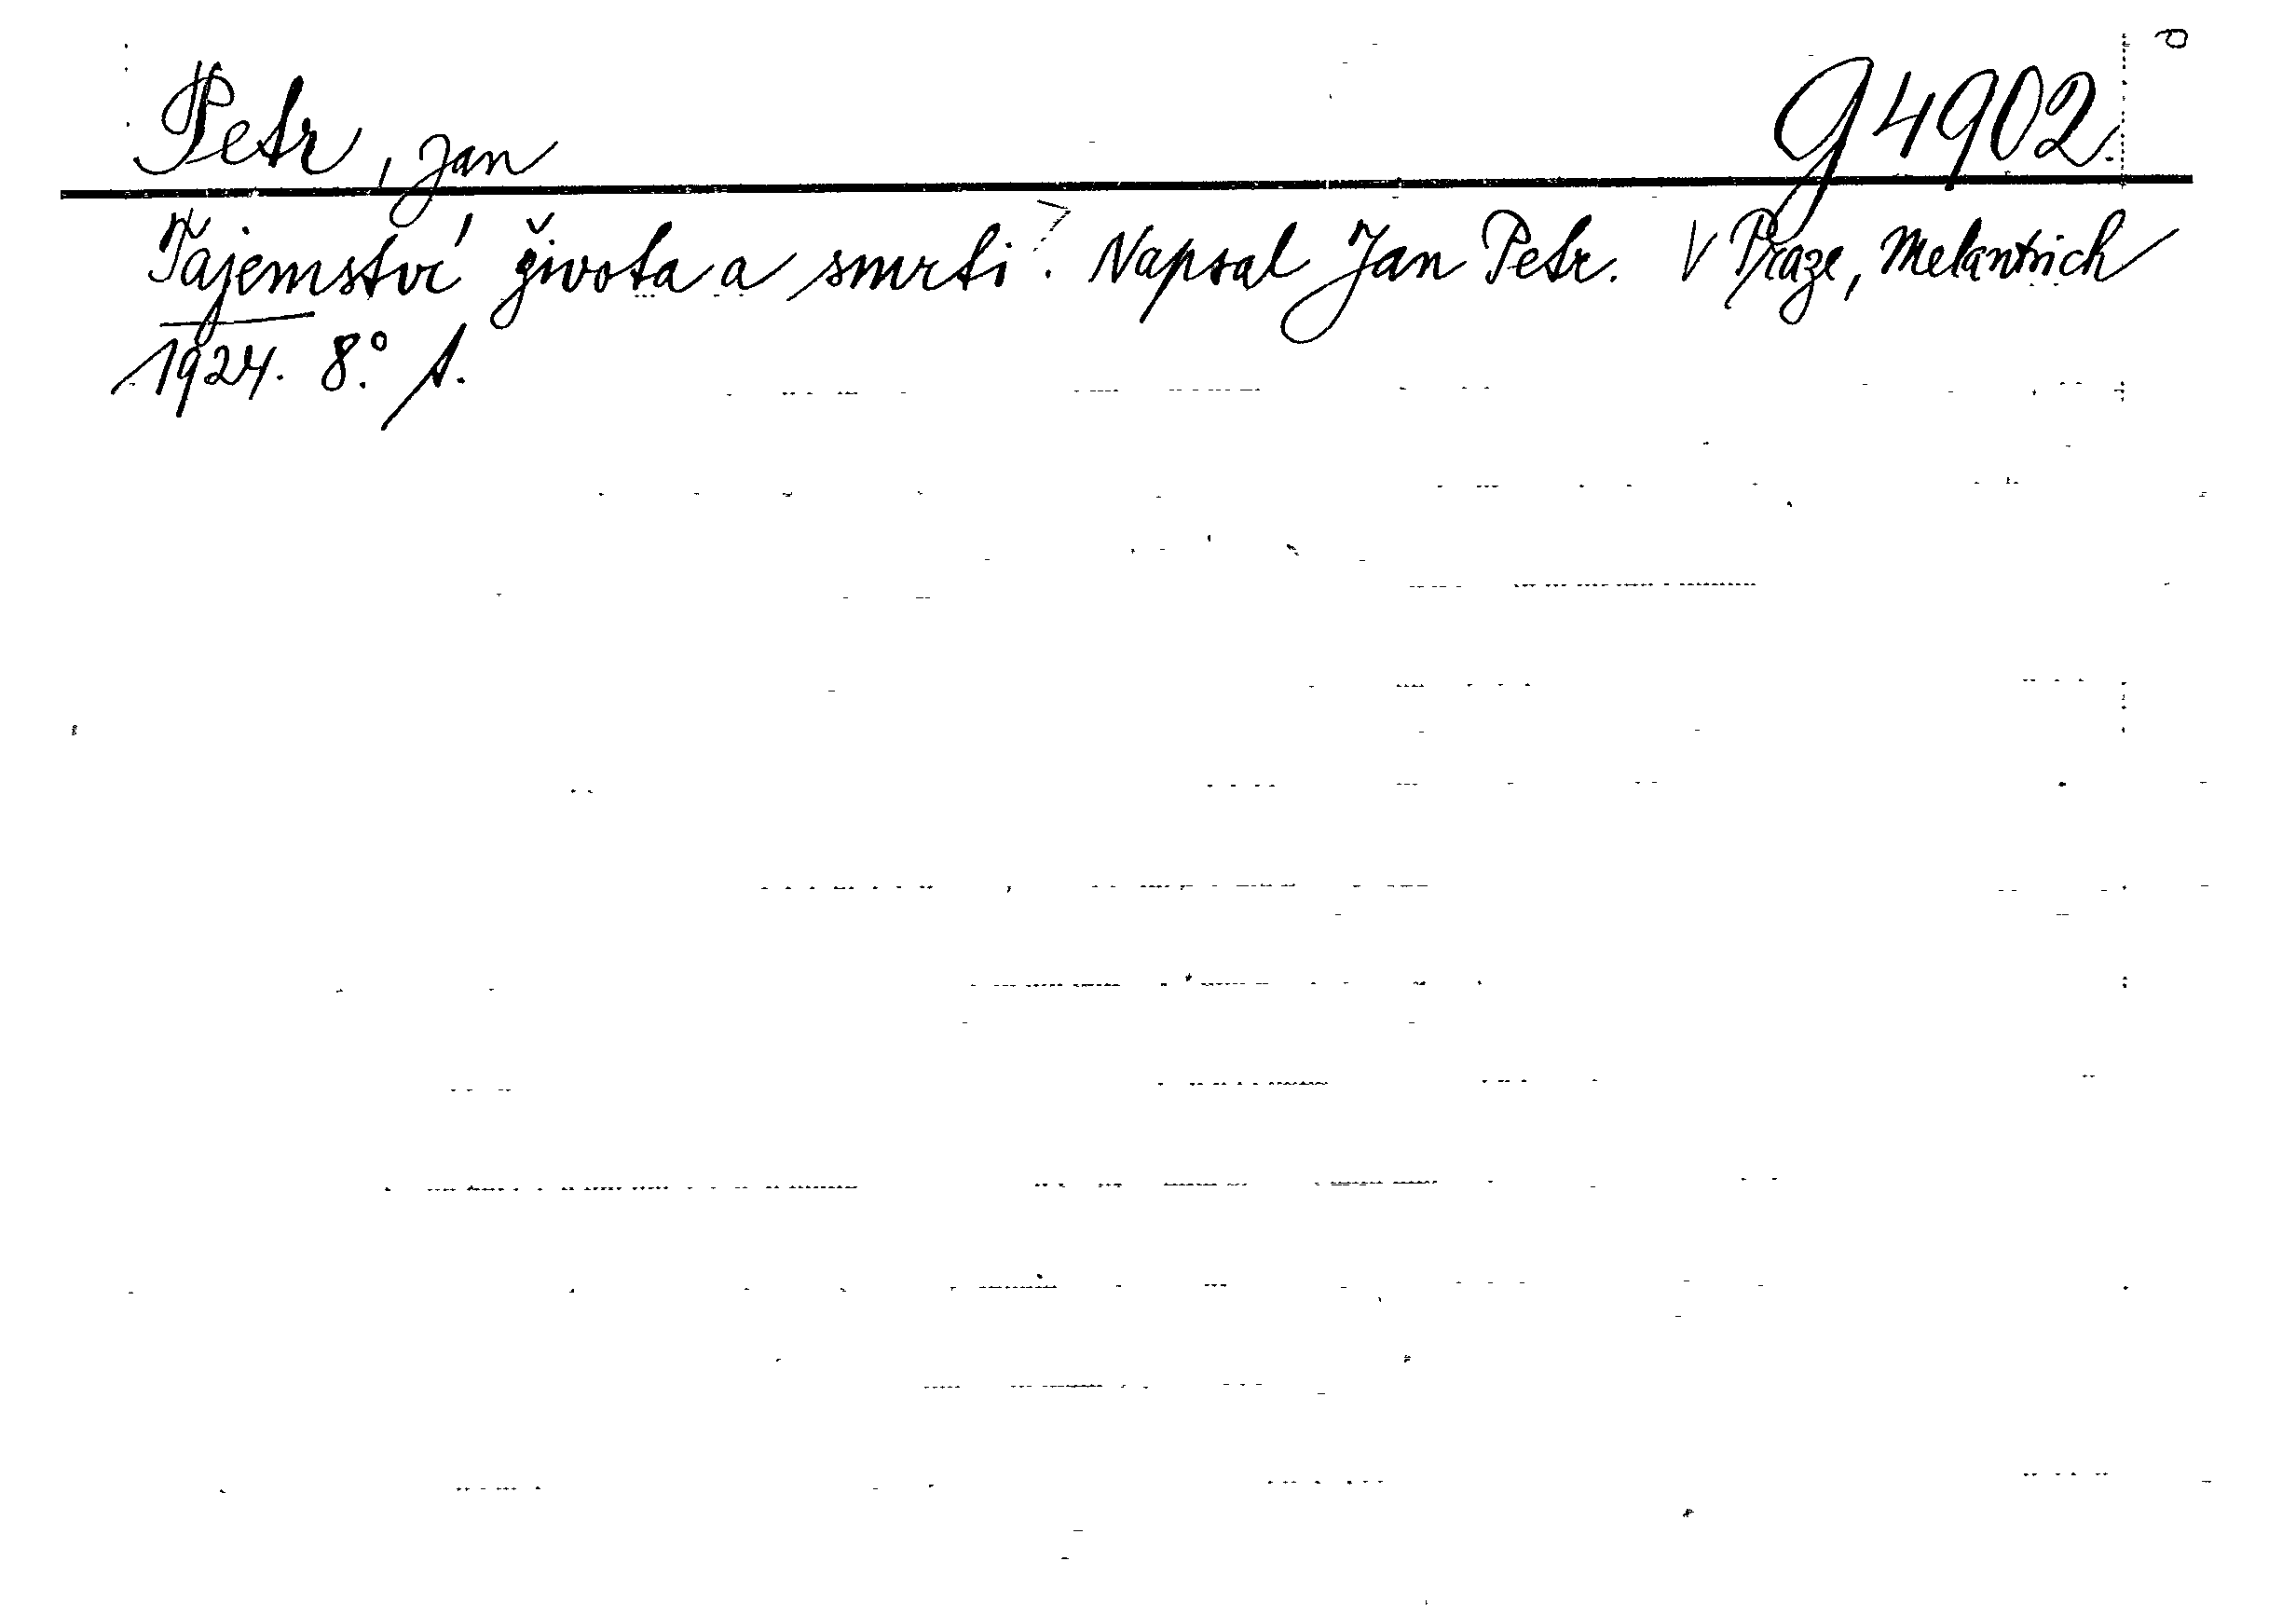 Petr, Jan g 4902.
Tajemství života a smrti? Napsal Jan Petr. V Praze, Melantrich
1924. 8°. s.